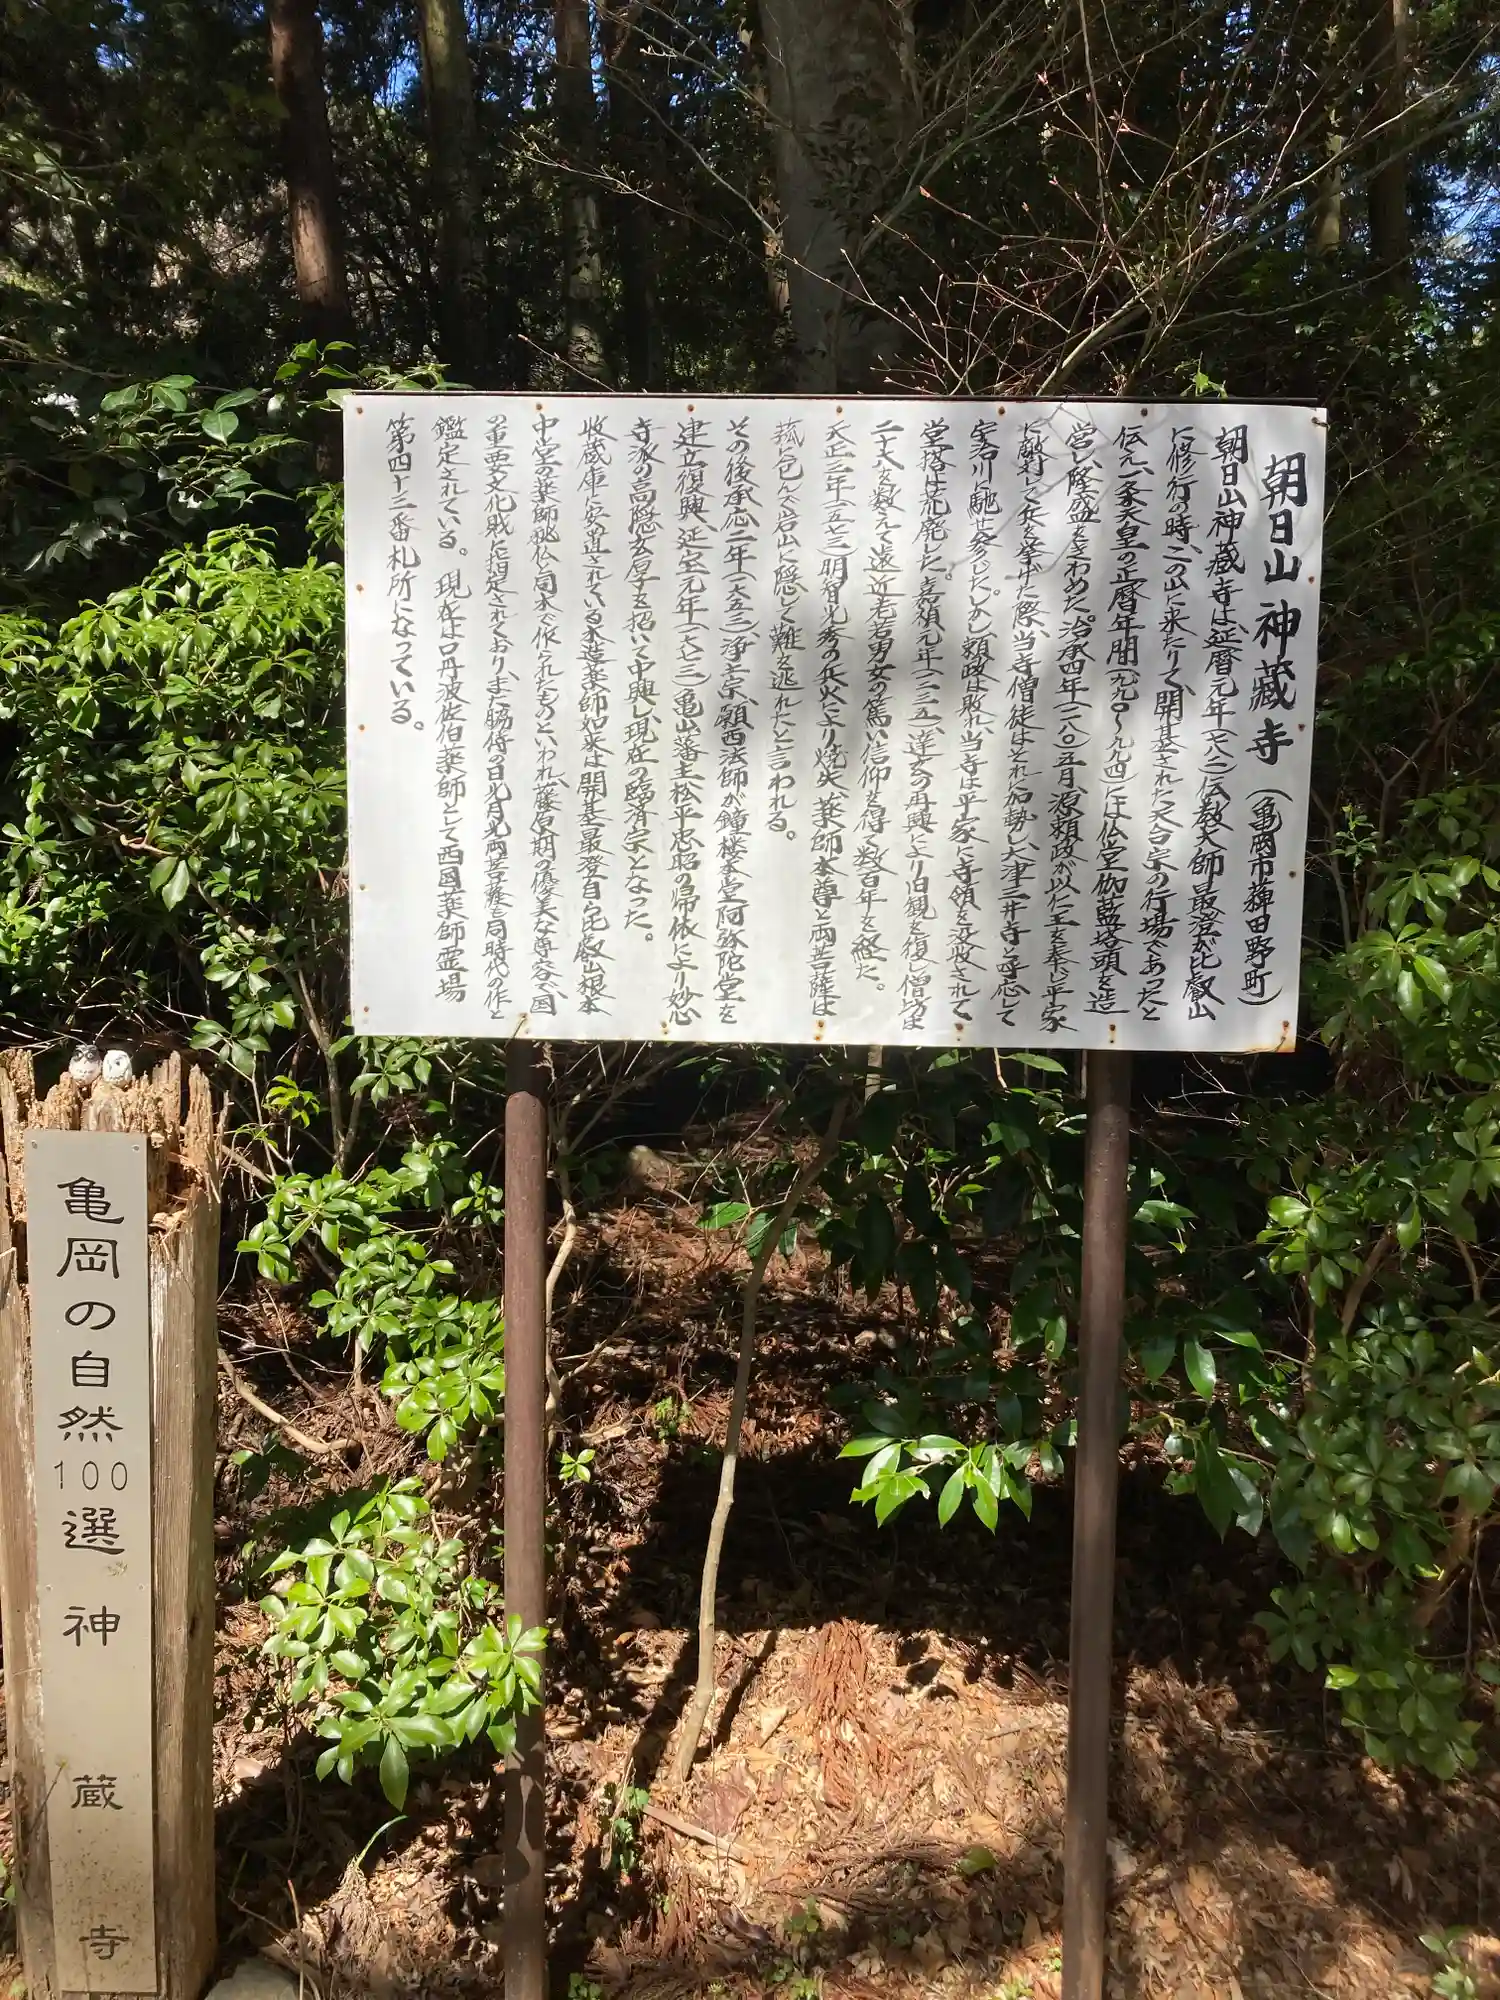 朝日山 神蔵寺（亀岡市薭田野町）
朝日山神蔵寺は、延暦元年(七八二)伝教大師最澄が比叡山
に修行の時、この山に来たりて、開基された天台宗の行場であったと
伝え、一条天皇の正暦年間(九九〇〜九九四)には仏堂伽藍塔頭を造
営し、隆盛をきわめた。治承四年(一一八〇)五月、源頼政が以仁王を奉じ平家
に敵対して兵を挙げた際、当寺僧徒はそれに加勢し大津三井寺と呼応して
宇治川に馳せ参じた。しかし頼政は敗れ、当寺は平家に寺領を没収されて、
堂塔は荒廃した。嘉禎元年(一二三五)、達玄の再興により旧観を復し僧坊は
二十六を数えて遠近老若男女の篤い信仰を得て数百年を経た。
天正三年(一五七三)明智光秀の兵火により焼失、薬師本尊と両菩薩は
菰に包んで岩山に隠して難を逃れたと言われる。
その後承応二年(一六五三)浄土宗、願西法師が鐘楼本堂阿弥陀堂を
建立復興、延宝元年(一六七三)亀山藩主松平忠昭の帰依により妙心
寺派の高隠玄厚子を招いて中興し、現在の臨済宗となった。
収蔵庫に安置されている木造薬師如来は開基最澄自ら比叡山根本
中堂の薬師秘仏同木で作られたものといわれ、藤原期の優美な尊容で、国
の重要文化財に指定されており、また脇侍の日光月光両菩薩も同時代の作と
鑑定されている。現在は口丹波佐伯薬師として西国薬師霊場
第四十三番札所になっている。
亀岡の自然100選 神蔵寺